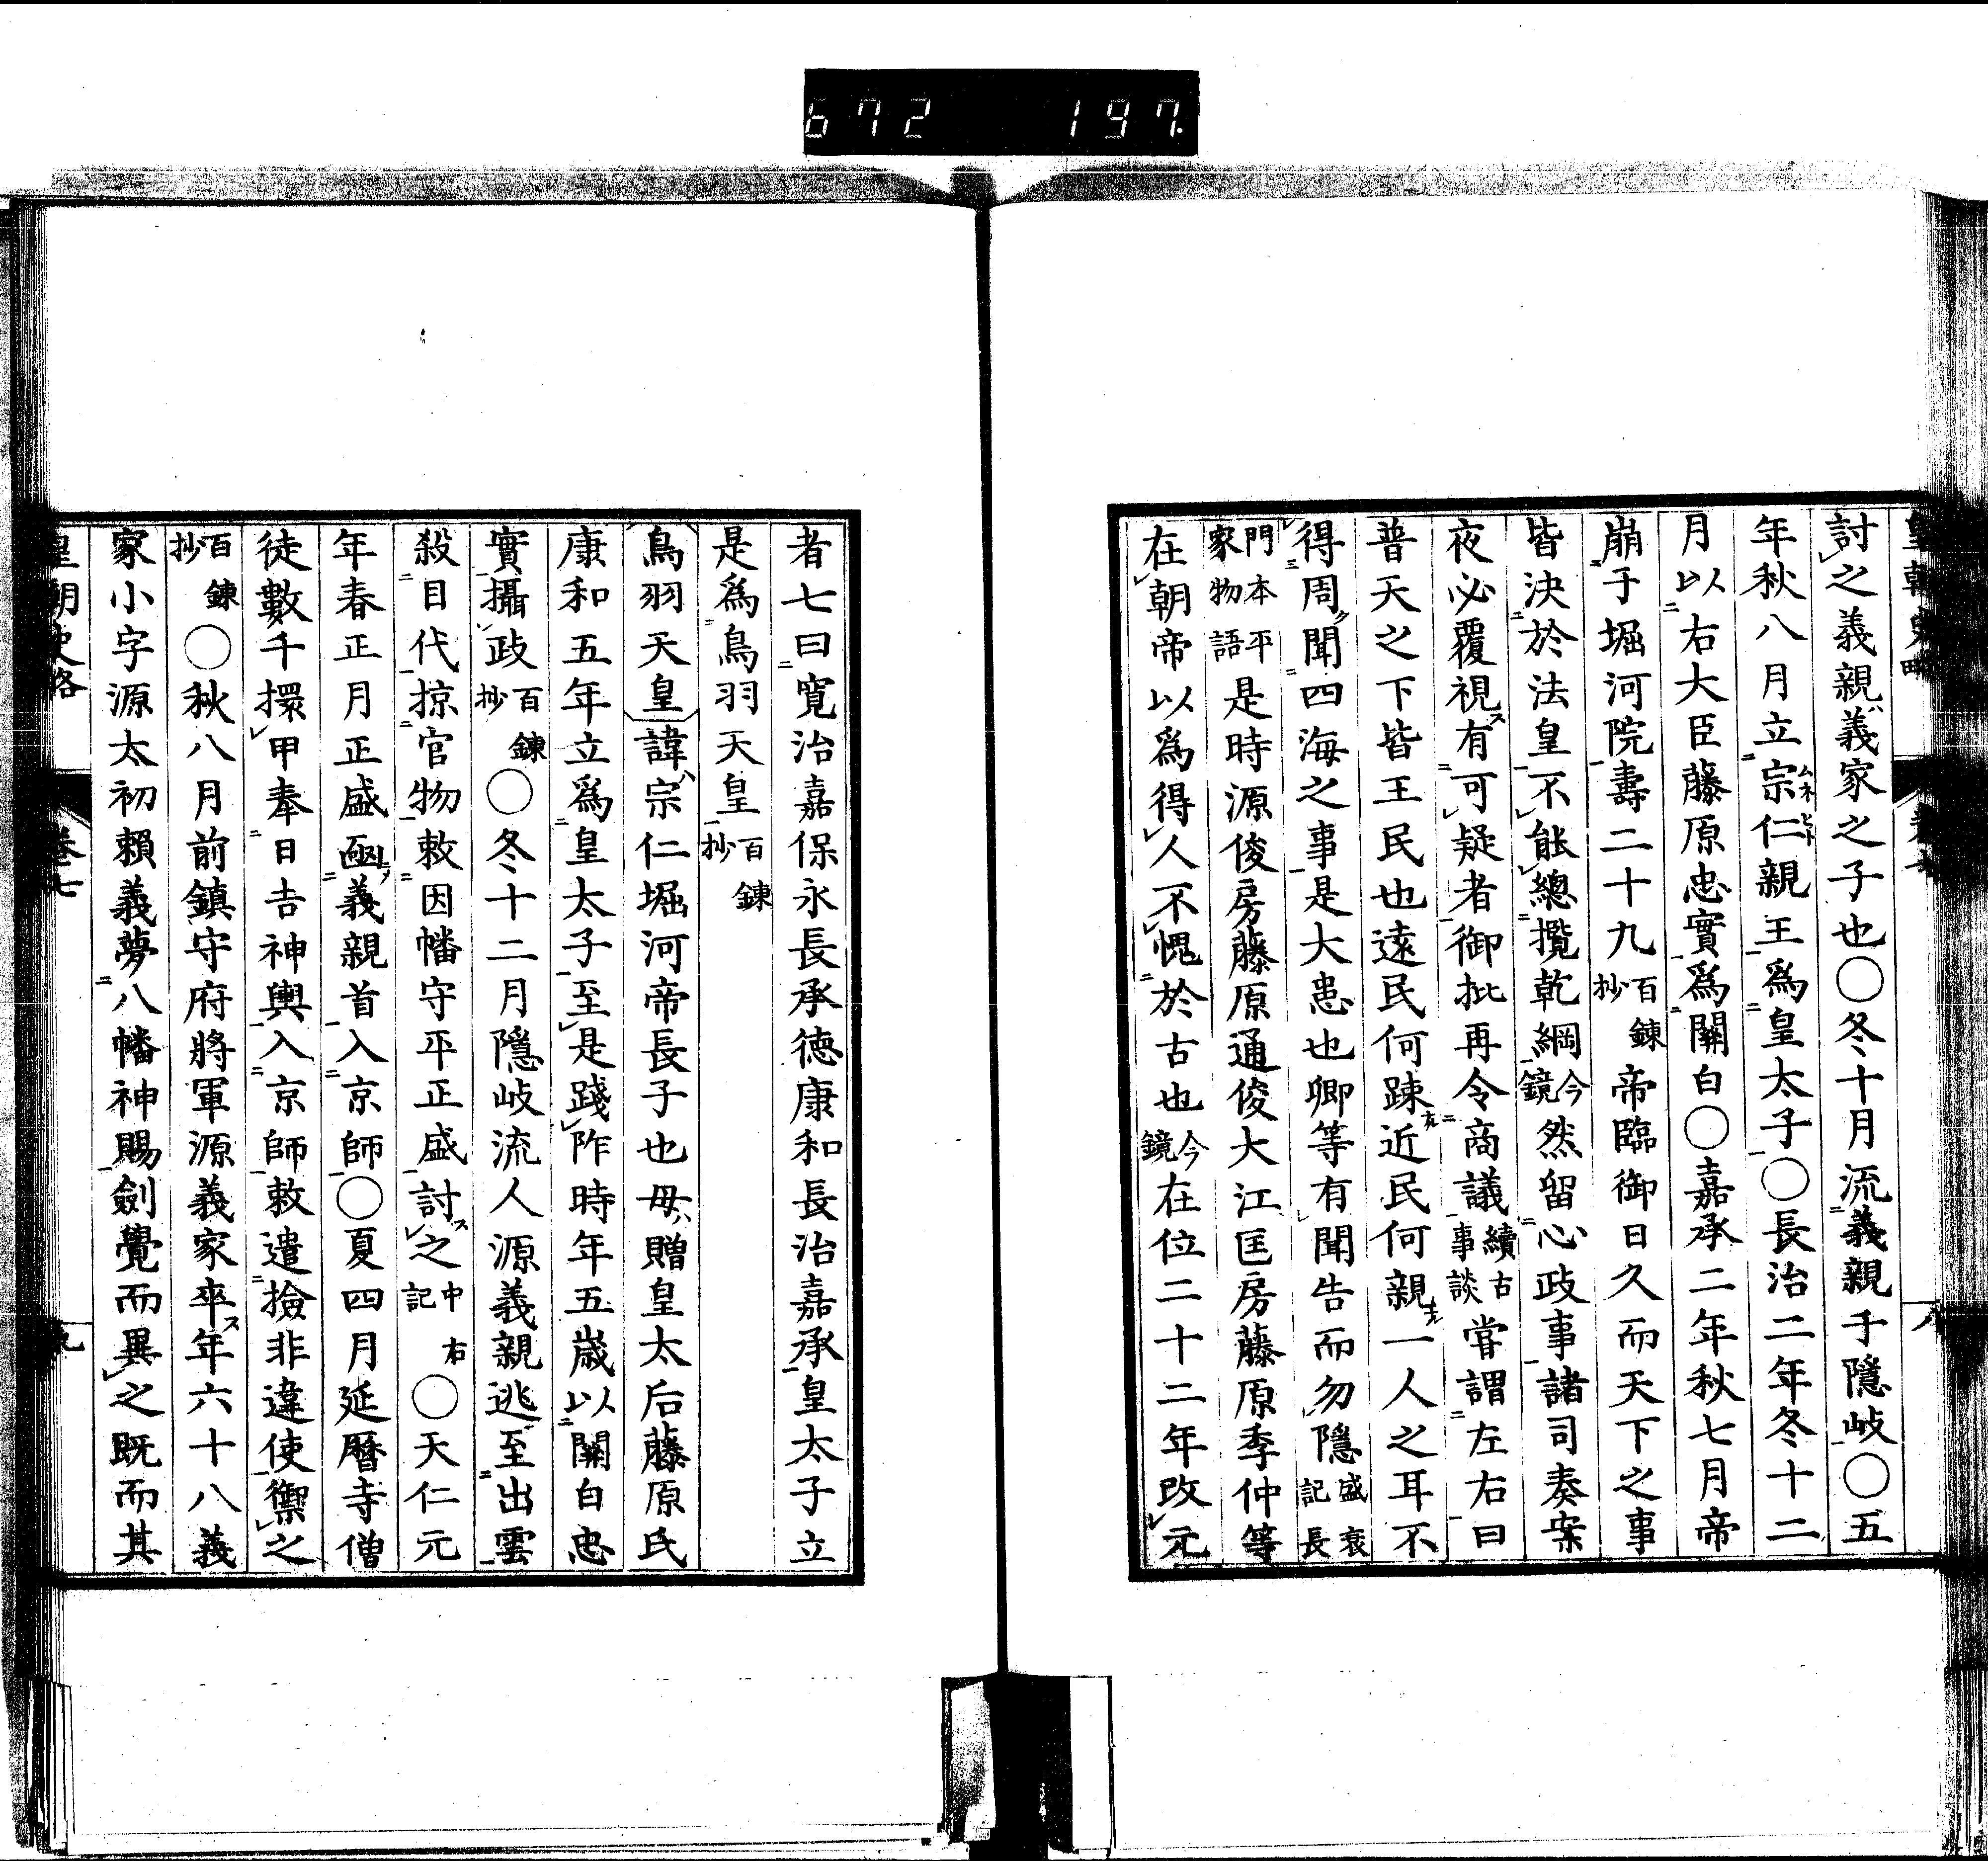 672 197.
皇朝史略 卷七 八
討之義親ハ義家之子也〇冬十月流義親于隱岐〇五
年秋八月立宗仁親王爲皇太子〇長治二年冬十二
月以右大臣藤原忠實爲關白〇嘉承二年秋七月帝
崩于堀河院壽二十九百鍊抄帝臨御日久而天下之事
皆決於法皇不能總攬乾綱今鏡然留心政事諸司奏案
夜必覆視有可疑者御批再令商議續古事談嘗謂左右曰
普天之下皆王民也遠民何踈近民何親一人之耳不
得周聞四海之事是大患也卿等有聞告而勿隱盛衰記長
門本平家物語是時源俊房藤原通俊大江匡房藤原季仲等
在朝帝以爲得人不愧於古也今鏡在位二十二年改元
者七曰寬治嘉保永長承德康和長治嘉承皇太子立
是爲鳥羽天皇百鍊抄
鳥羽天皇諱ハ宗仁堀河帝長子也母ハ贈皇太后藤原氏
康和五年立爲皇太子至是踐阼時年五歲以關白忠
實攝政百鍊抄〇冬十二月隱岐流人源義親逃至出雲
殺目代掠官物敕因幡守平正盛討之中右記〇天仁元
年春正月正盛函義親首入京師〇夏四月延曆寺僧
徒數千擐甲奉日吉神輿入京師敕遣撿非違使禦之
百鍊抄〇秋八月前鎮守府將軍源義家卒年六十八義
家小字源太初賴義夢八幡神賜劍覺而異之既而其
皇朝史略 卷七 九